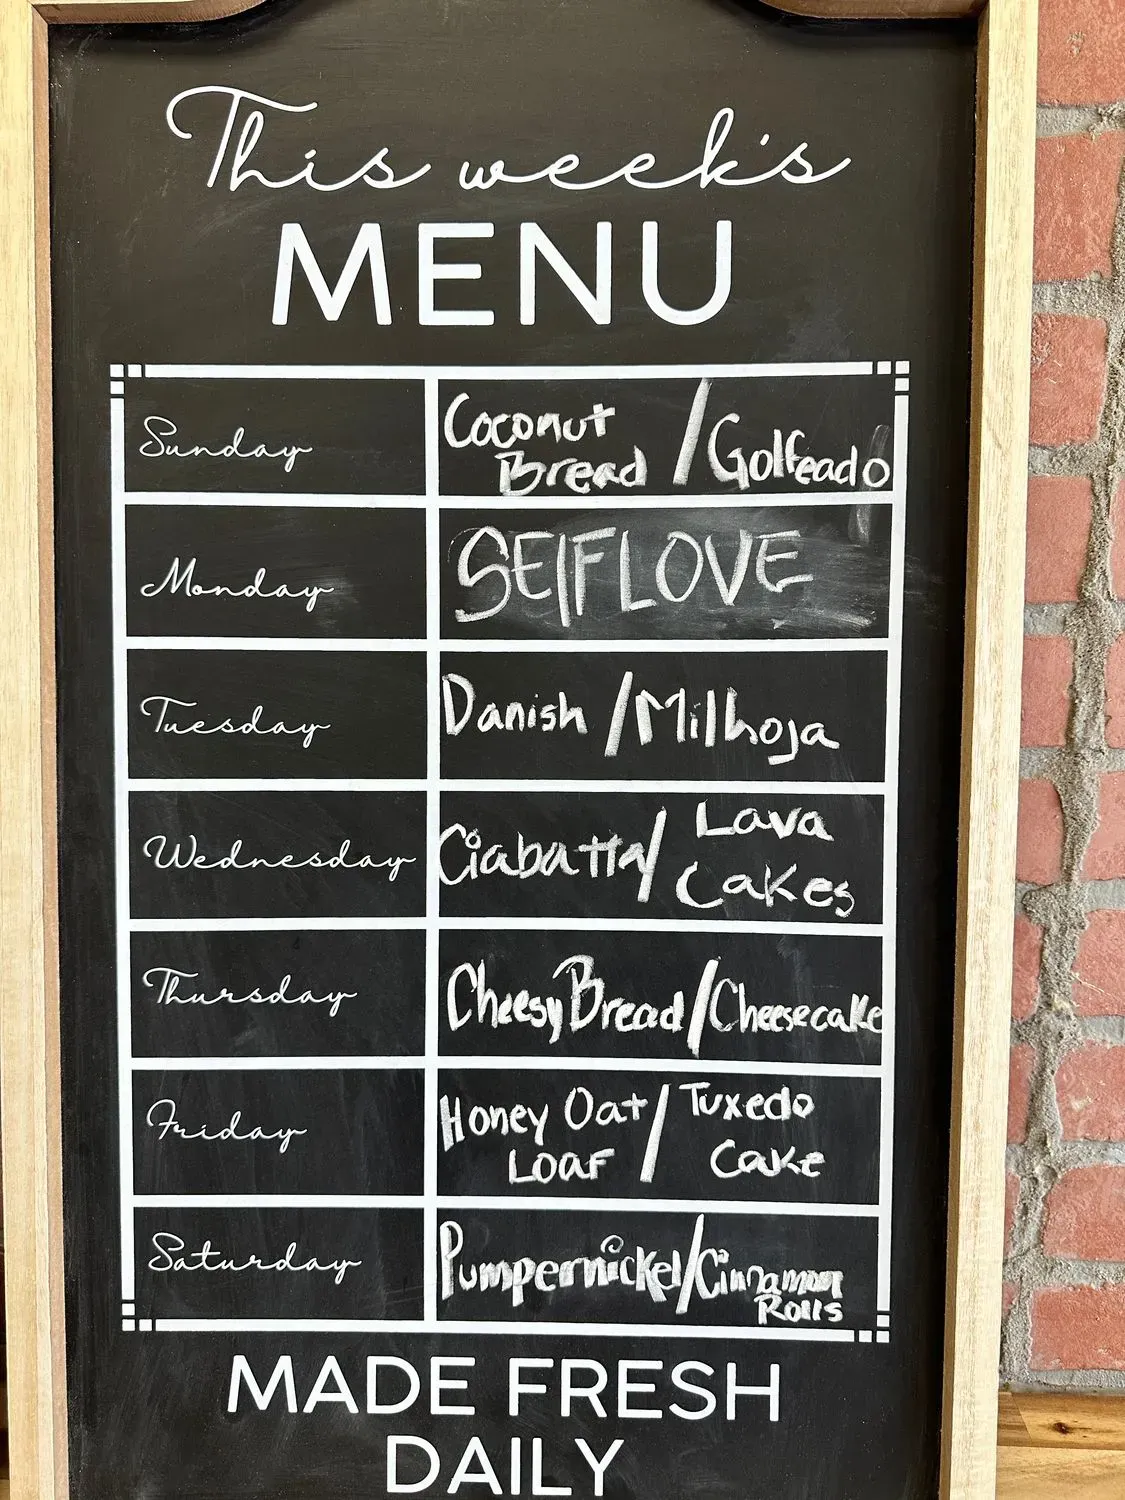 This week's
MENU
Sunday
Coconut
Bread / Golfeado
Monday
SElFLOVE
Tuesday
Danish / Milhoja
Wednesday
Ciabatta / Lava
Cakes
Thursday
Cheesy Bread / Cheesecake
Friday
Honey Oat / Tuxedo
Loaf Cake
Saturday
Pumpernickel / Cinnamon
Rolls
MADE FRESH
DAILY